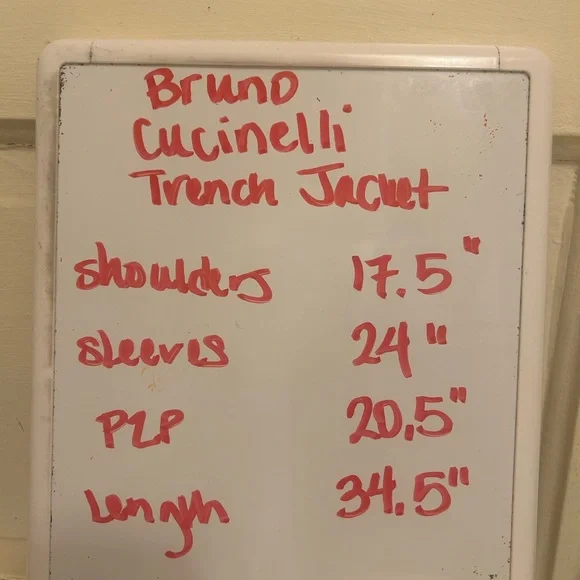 Bruno
Cucinelli
Trench Jacket
shoulders 17.5"
sleeves 24"
P2P 20.5"
Length 34.5"